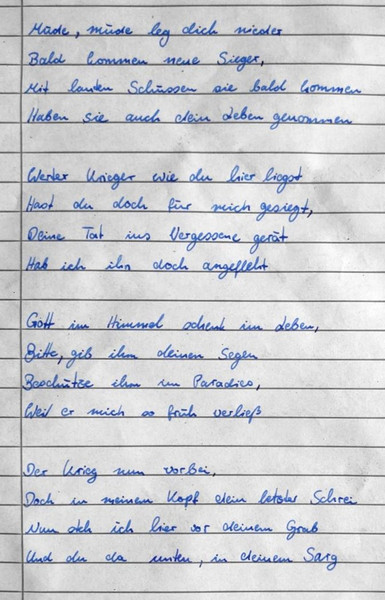 Müde, müde leg dich nieder
Bald kommen neue Sieger,
Mit lauten Schüssen sie bald kommen
Haben sie auch dein Leben genommen
Werter Krieger wie du hier liegst
Hast du doch für mich gesiegt,
Deine Tat ins Vergessene gerät
Hab ich ihn doch angefleht
Gott im Himmel schenk im Leben,
Bitte, gib ihm deinen Segen
Beschütze ihm im Paradies,
Weil er mich so früh verließ
Der Krieg nun vorbei,
Doch in meinem Kopf dein letzter Schrei
Nun steh ich hier vor deinem Grab
Und du da unten, in deinem Sarg